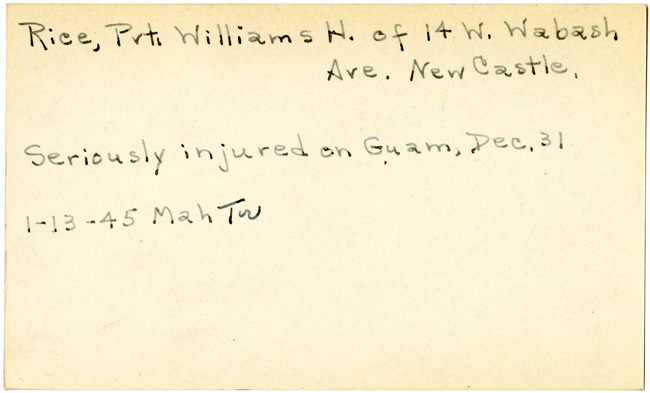 Rice, Pvt. Williams H. of 14 W. Wabash
Ave. New Castle.
Seriously injured on Guam, Dec. 31
1-13-45 Mah Tw